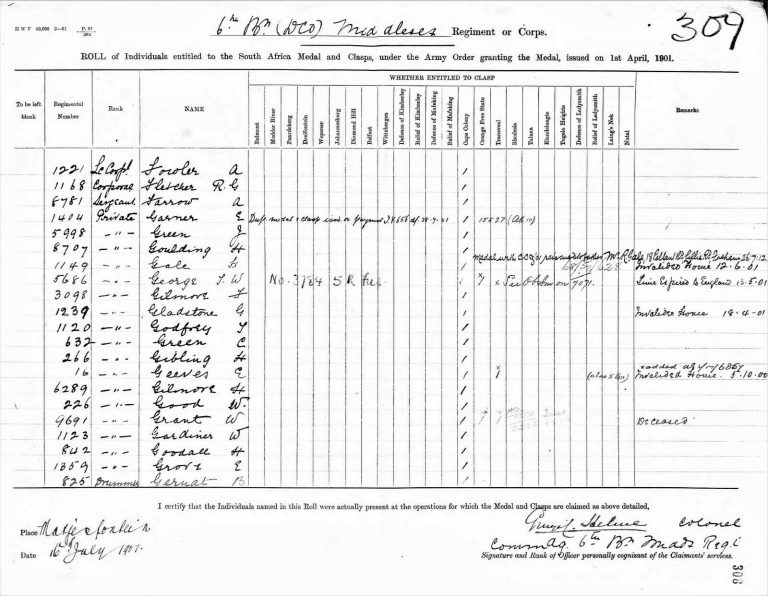 H W V 50,000 3—01
6th Bn (DCO) Middlesex Regiment or Corps.
309
ROLL of Individuals entitled to the South Africa Medal and Clasps, under the Army Order granting the Medal, issued on 1st April, 1901.
WHETHER ENTITLED TO CLASP
To be left blank Regimental Number Rank NAME Belmont Modder River Paardeberg Driefontein Wepener Johannesburg Diamond Hill Belfast Wittebergen Defence of Kimberley Relief of Kimberley Defence of Mafeking Relief of Mafeking Cape Colony Orange Free State Transvaal Rhodesia Talana Elandslaagte Tugela Heights Defence of Ladysmith Relief of Ladysmith Laing's Nek Natal Remarks
1221 Lc Corpl Fowler A /
1168 Corporal Fletcher R. G /
8781 Sergeant Farrow A /
1404 Private Garner E Dup. medal & clasp issd on payment 28.9.21 / 15527
5998 -"- Green J /
8707 -"- Goulding H /
1149 -"- Gale / Invalided Home 12.6.01
5686 -"- George W No. 3784 S R / 9071. Time Expired to England 13.5.01
3098 -"- Gilmore F /
1239 -"- Gladstone G / Invalided Home 18.4.01
1120 -"- Godfrey /
632 -"- Green C /
266 -"- Gibling H /
16 -"- Geeves E / (also 5 Bn) Invalided Home 5.10.00
6289 -"- Gilmore H /
226 -"- Good W. /
9691 -"- Grant W / Deceased
1123 -"- Gardiner W /
842 -"- Goodall H /
1359 -"- Grove E /
825 Drummer Gernat B /
I certify that the Individuals named in this Roll were actually present at the operations for which the Medal and Clasps are claimed as above detailed,
Place Matjesfontein
Helme Colonel
Date 16th July 1901.
Commdg. 6th Bn Middx Regt
Signature and Rank of Officer personally cognisant of the Claimants' services.
308